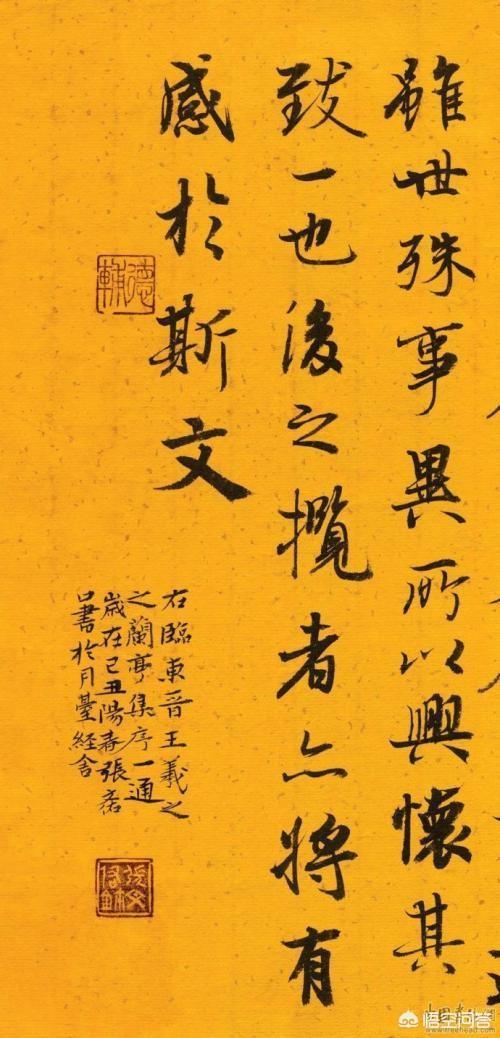 雖世殊事異所以興懷其
致一也後之攬者亦將有
感於斯文
右臨東晉王羲之
之蘭亭集序一通
歲在己丑陽春張
書於月臺經舍
德輔
悟空问答